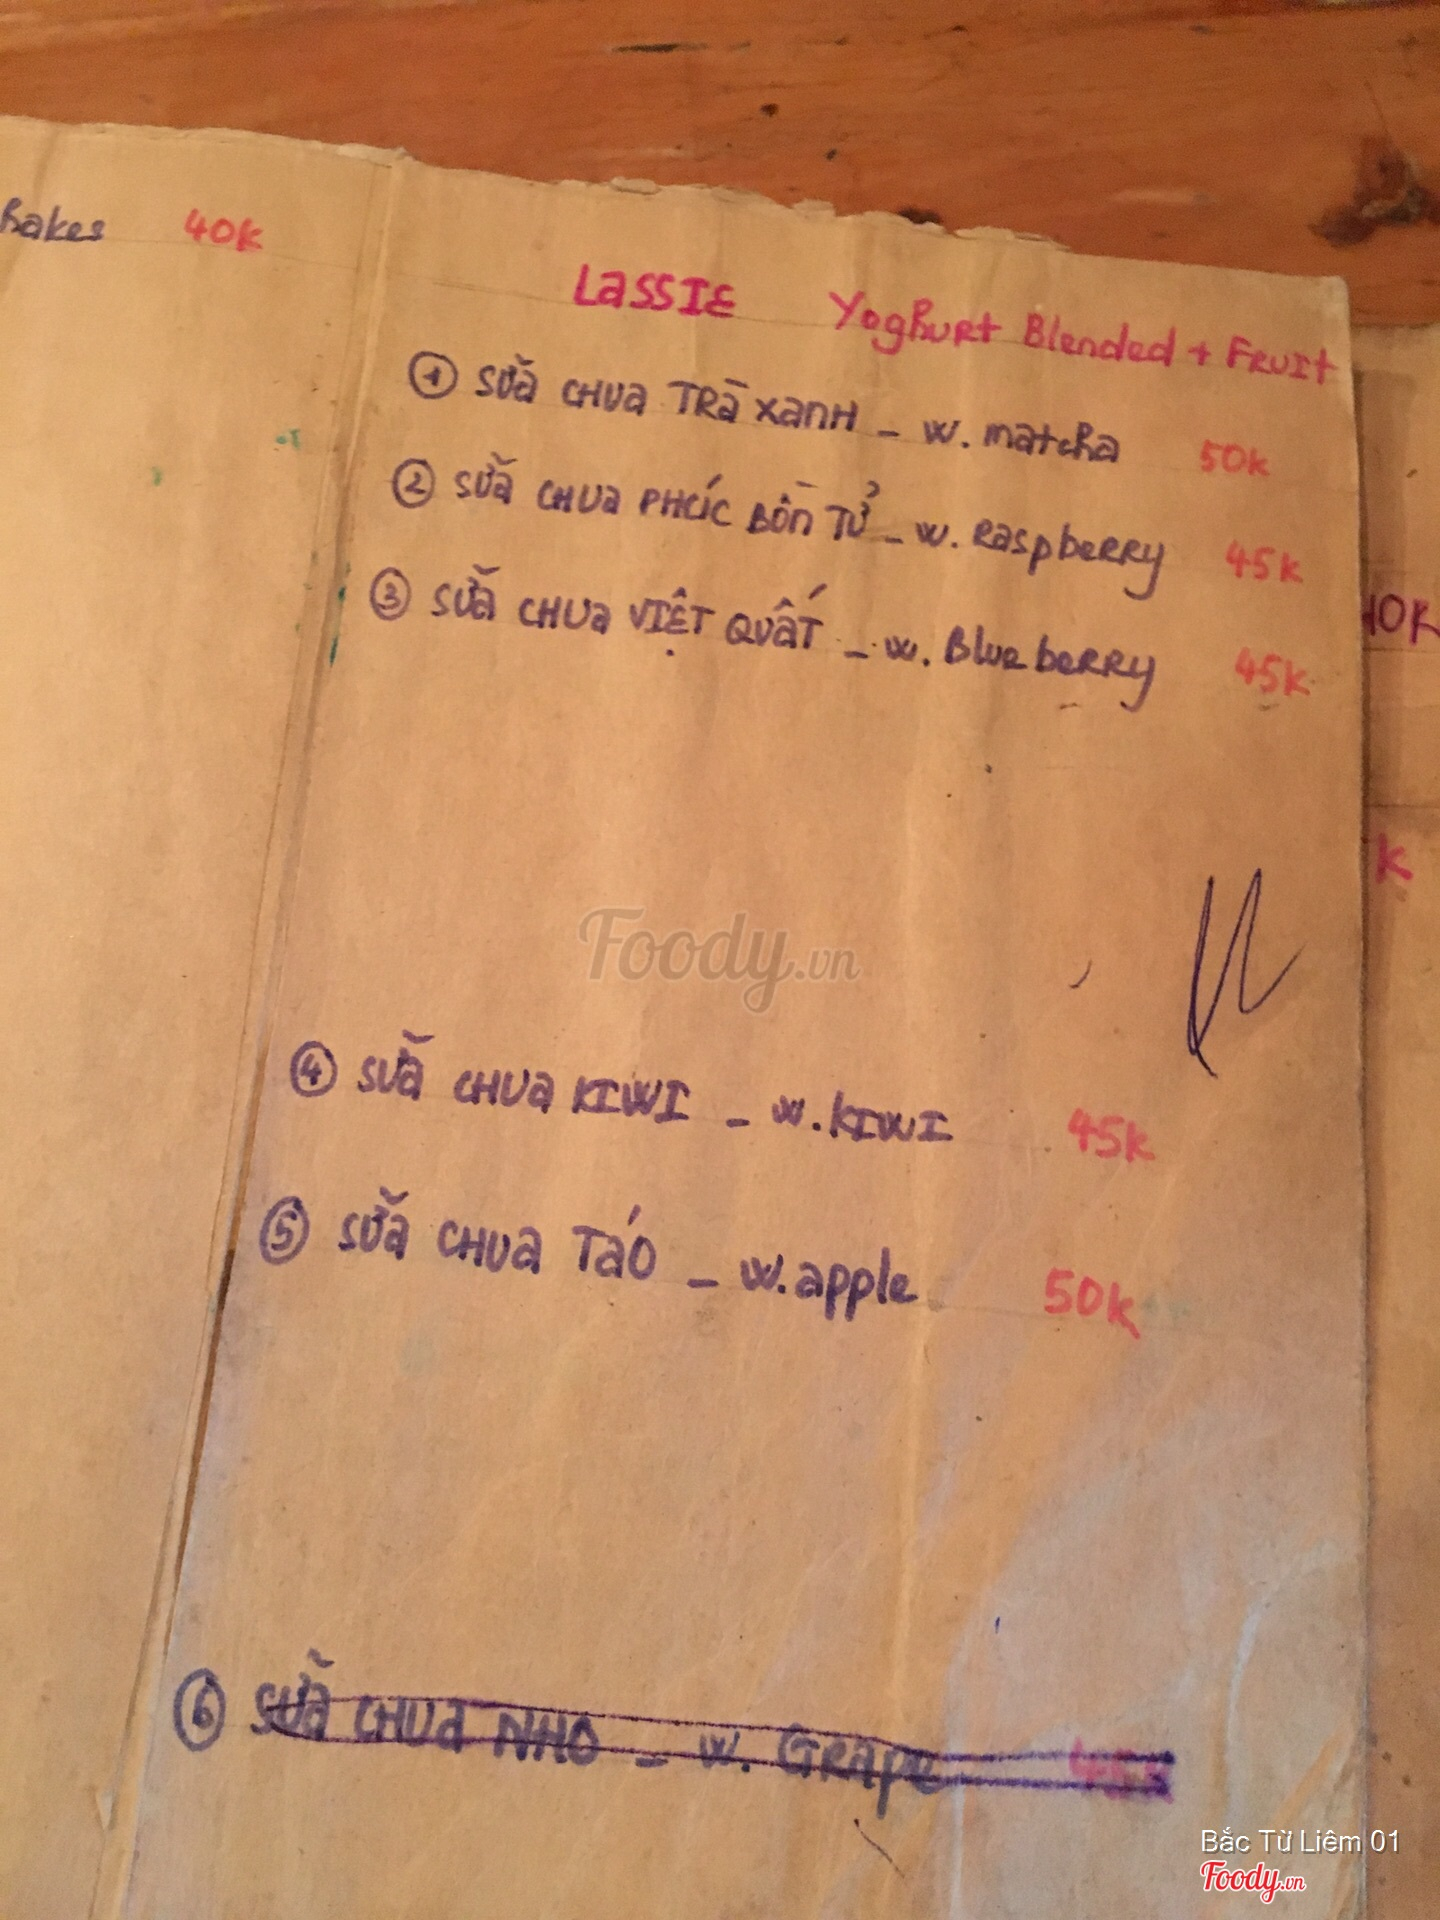 Bakes 40K
LASSIE Yoghurt Blended + Fruit
① Sữa chua trà xanh - w. matcha 50K
② Sữa chua phúc bồn tử - w. Raspberry 45K
③ Sữa chua việt quất - w. Blueberry 45K
④ Sữa chua kiwi - w. kiwi 45K
⑤ Sữa chua táo - w. apple 50K
⑥ Sữa chua nho - w. Grape 45K
K
Foody.vn
Bắc Từ Liêm 01
Foody.vn